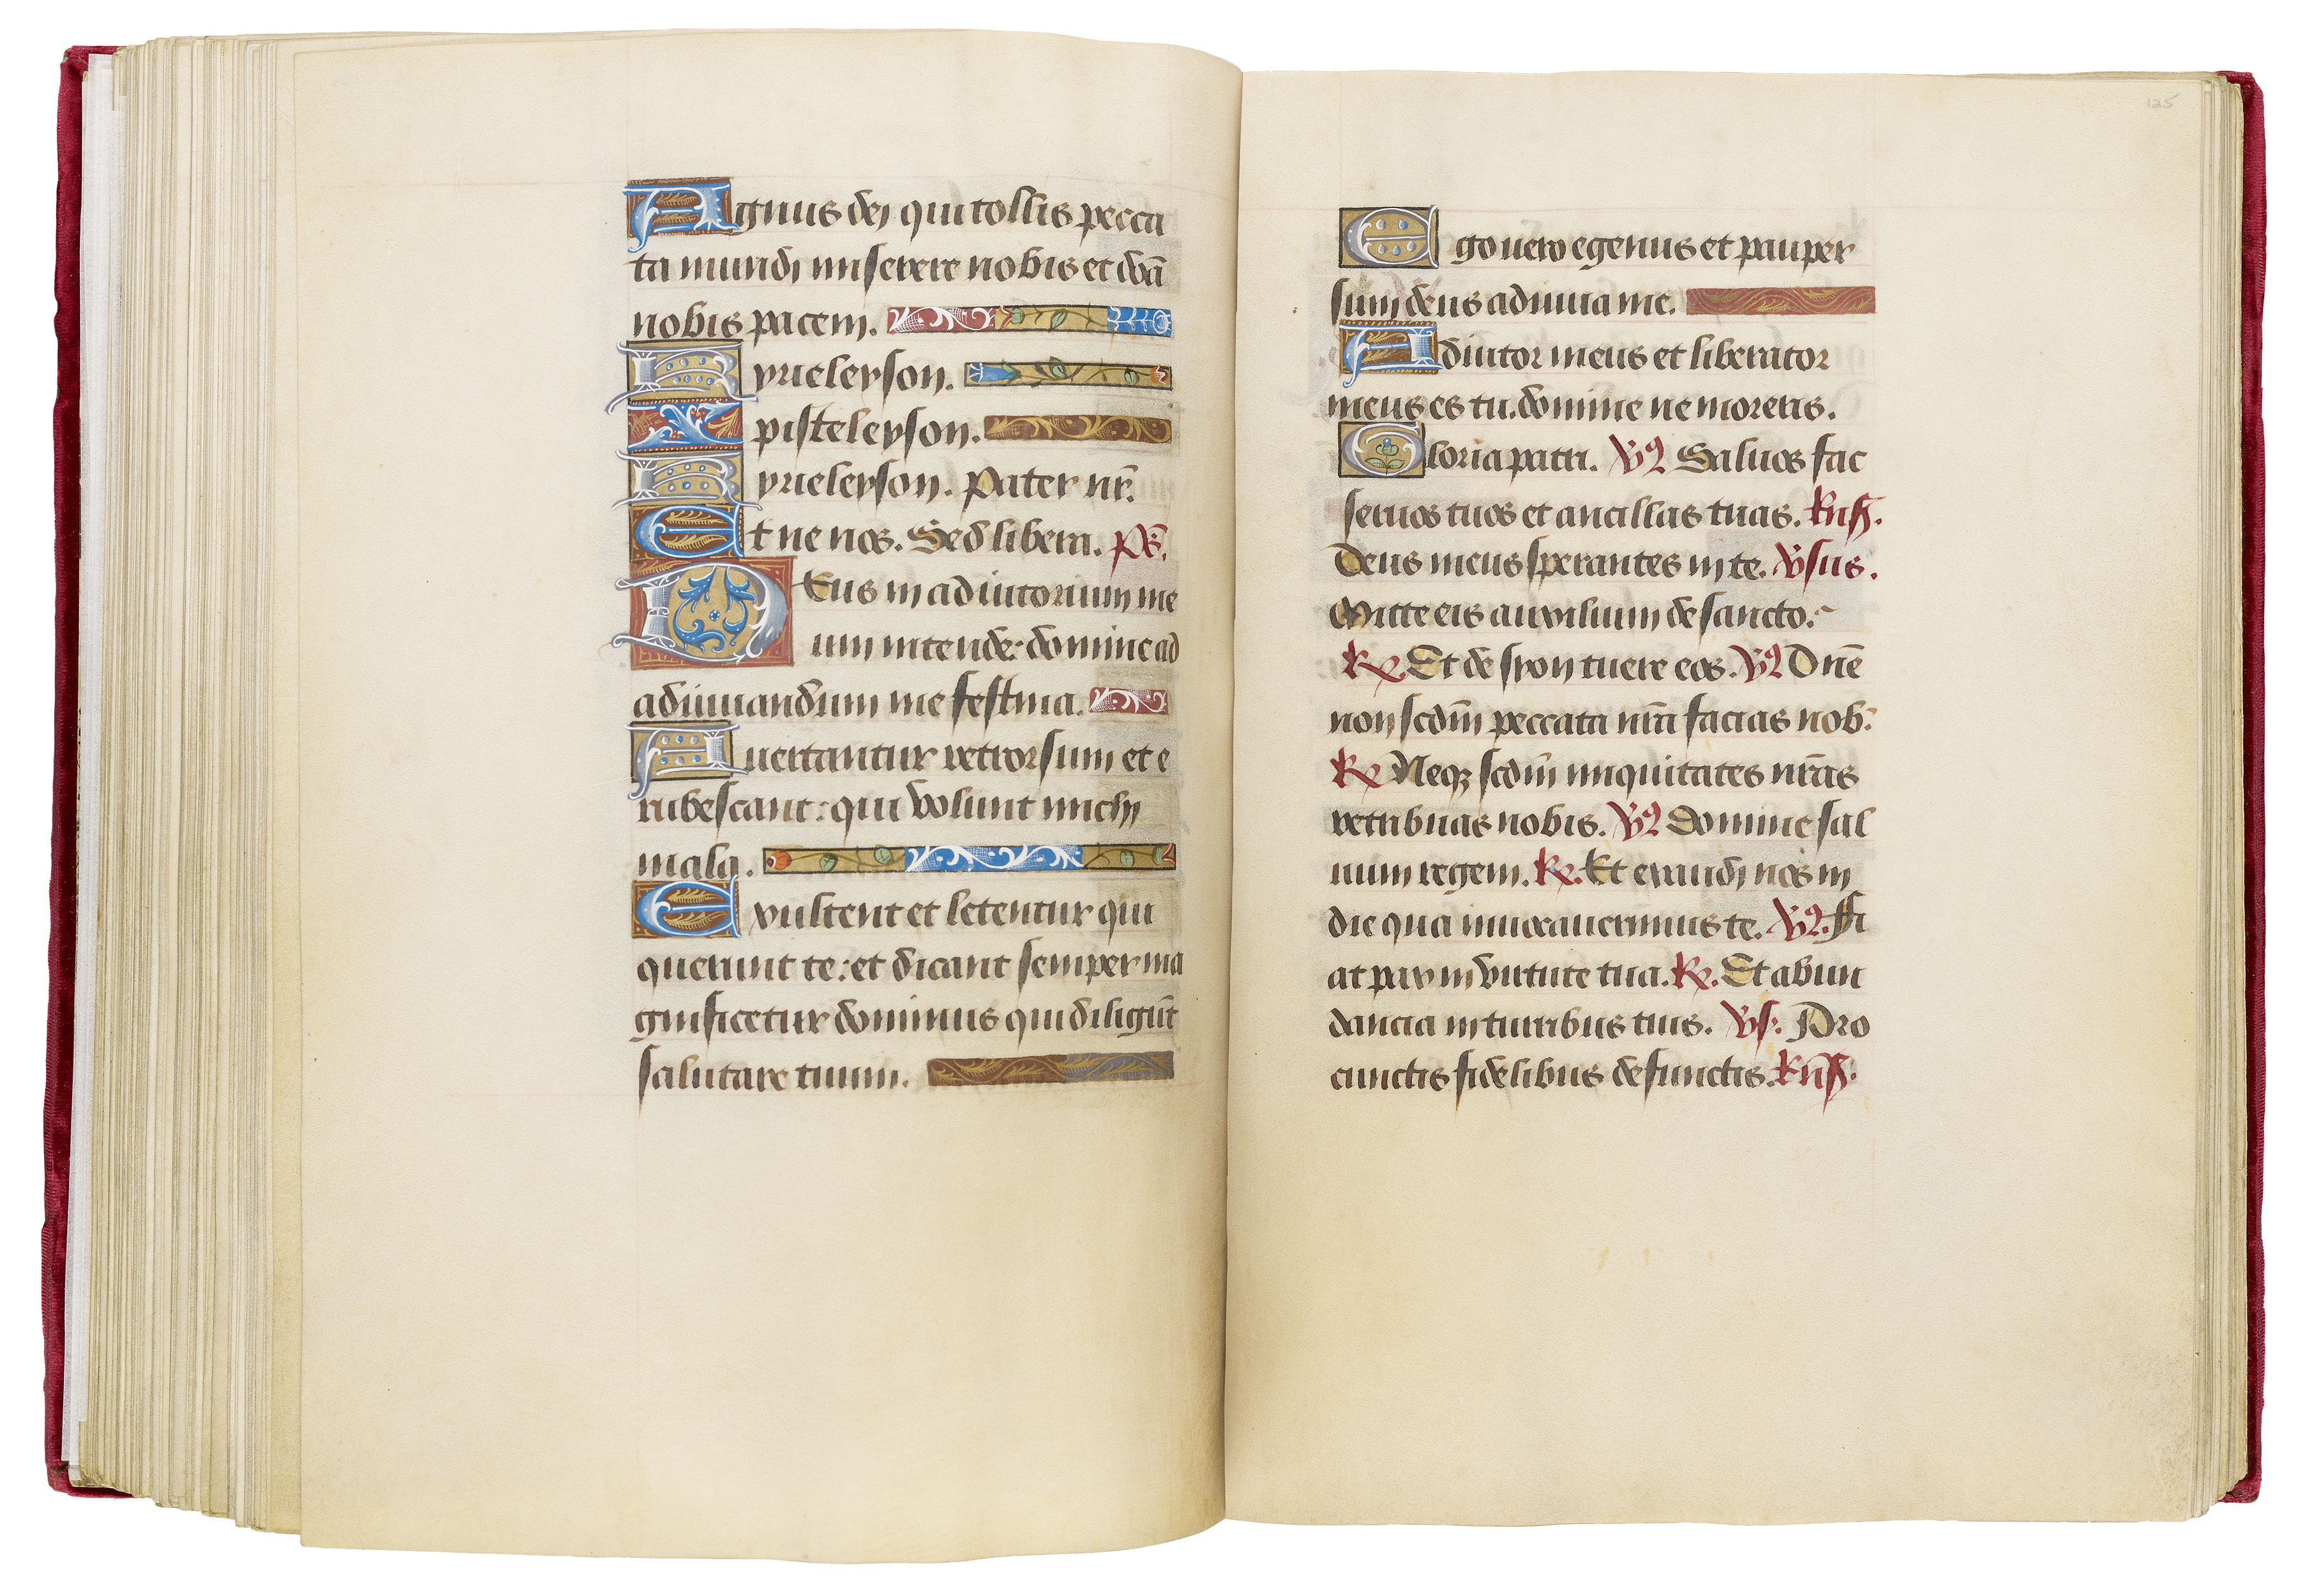 Agnus dei qui tollis pecca
ta mundi miserere nobis et doā
nobis pacem.
Kyrieleyson.
Xpisteleyson.
Kyrieleyson. Pater nr̄.
Et ne nos. Sed libera. Ps̄.
DEus in adiutorium me
um intende: domine ad
adiuuandum me festina.
Auertantur retrorsum et e
rubescant: qui volunt michi
mala.
Exultent et letentur qui
querunt te: et dicant semper ma
gnificetur dominus qui diligūt
salutare tuum.
125
Ego uero egenus et pauper
sum deus adiuua me.
Adiutor meus et liberator
meus es tu. domine ne moreris.
Gloria patri. V9 Saluos fac
seruos tuos et ancillas tuas. Rn̄ß.
Deus meus sperantes in te. v̄sus.
Mitte eis auxilium de sancto.
R̷. Et de syon tuere eos. V9 Dn̄e
non scdm̄ peccata nr̄a facias nob̄.
R̷ Neqꝫ scdm̄ iniquitates nr̄as
retribuas nobis. V9 Domine sal
uum regem. R̷. Et exaudi nos in
die qua inuocauerimus te. V9. ffi
at pax in virtute tua. R̷. Et abun
dancia in turribus tuis. v̄s. Pro
cunctis fidelibus defunctis. Rn̄ß.